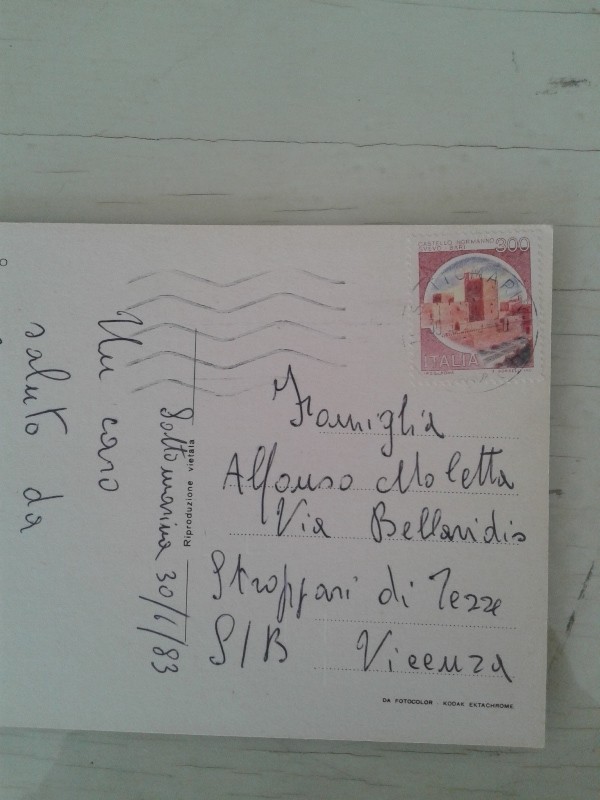 Un caro
saluto da
Sottomarina 30/6/83
Riproduzione vietata
CASTELLO NORMANNO
SVEVO BARI
300
ITALIA
Famiglia
Alfonso Moletta
Via Bellaridis
Stroppari di Tezze
S/B Vicenza
DA FOTOCOLOR - KODAK EKTACHROME